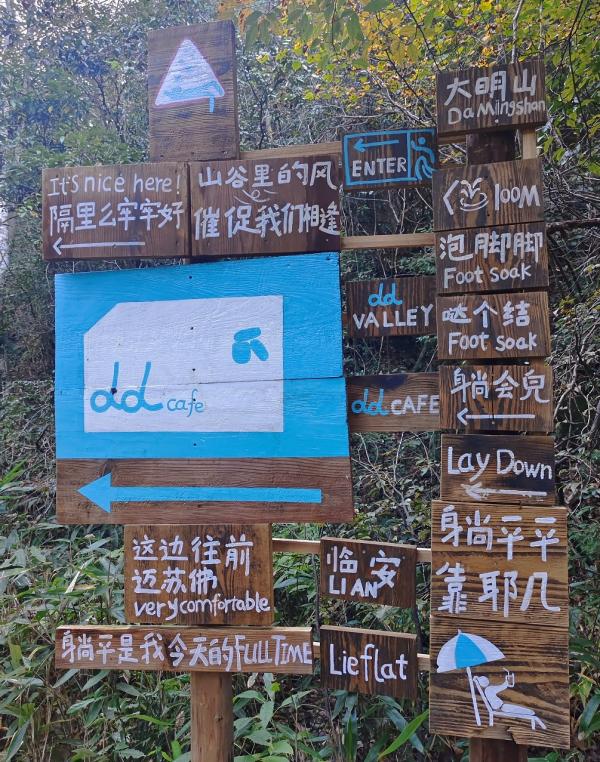 It's nice here!
隔里么牢牢好
山谷里的风
催促我们相逢
ENTER
大明山
DaMingshan
100M
泡脚脚
Foot soak
dd
VALLEY
哒个结
Foot soak
dd cafe
dd CAFE
躺会兒
Lay Down
躺平平
靠耶几
这边往前
迈苏佛
very comfortable
临安
LIAN
躺平是我今天的FULL TIME
Lie flat